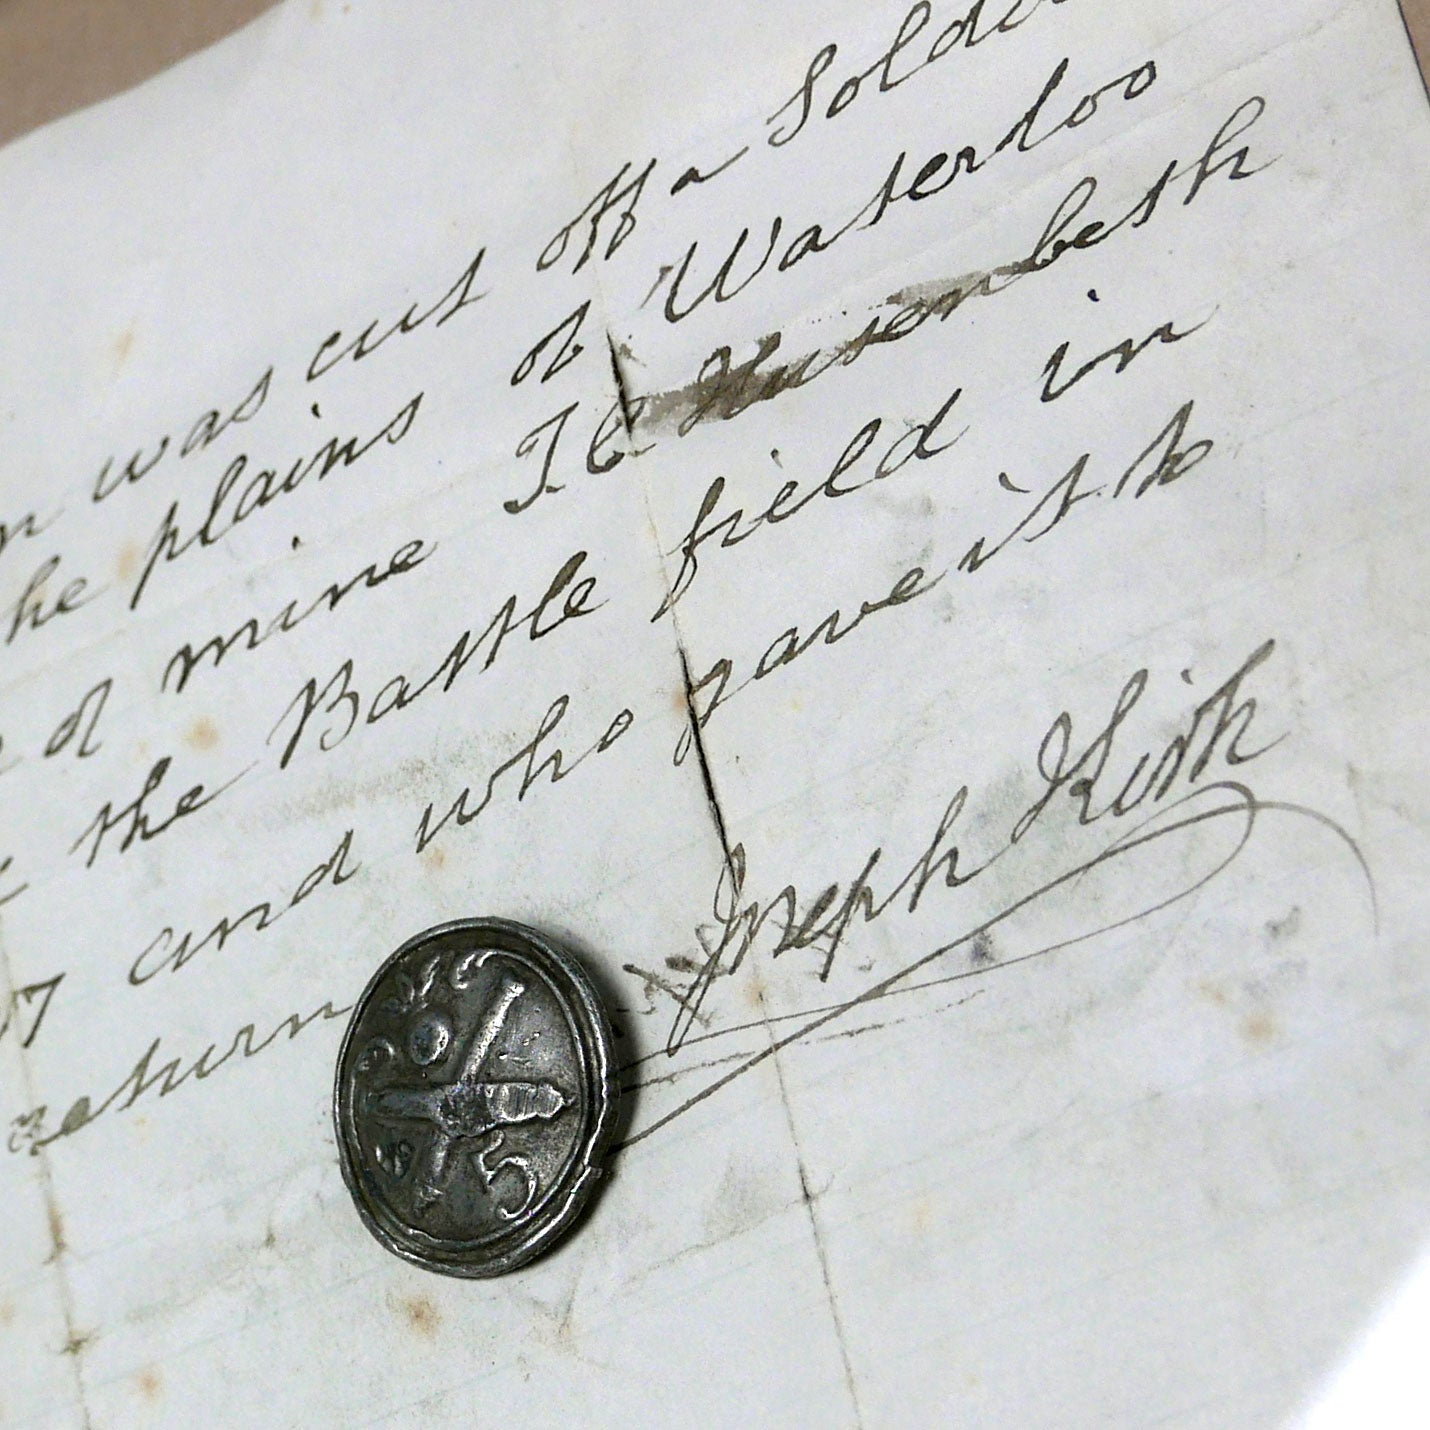 was cut off a Soldi
he plains of Waterloo
of mine J.C Husenbeth
the Battle field in
and who gave it to
return
Joseph Kirk
5